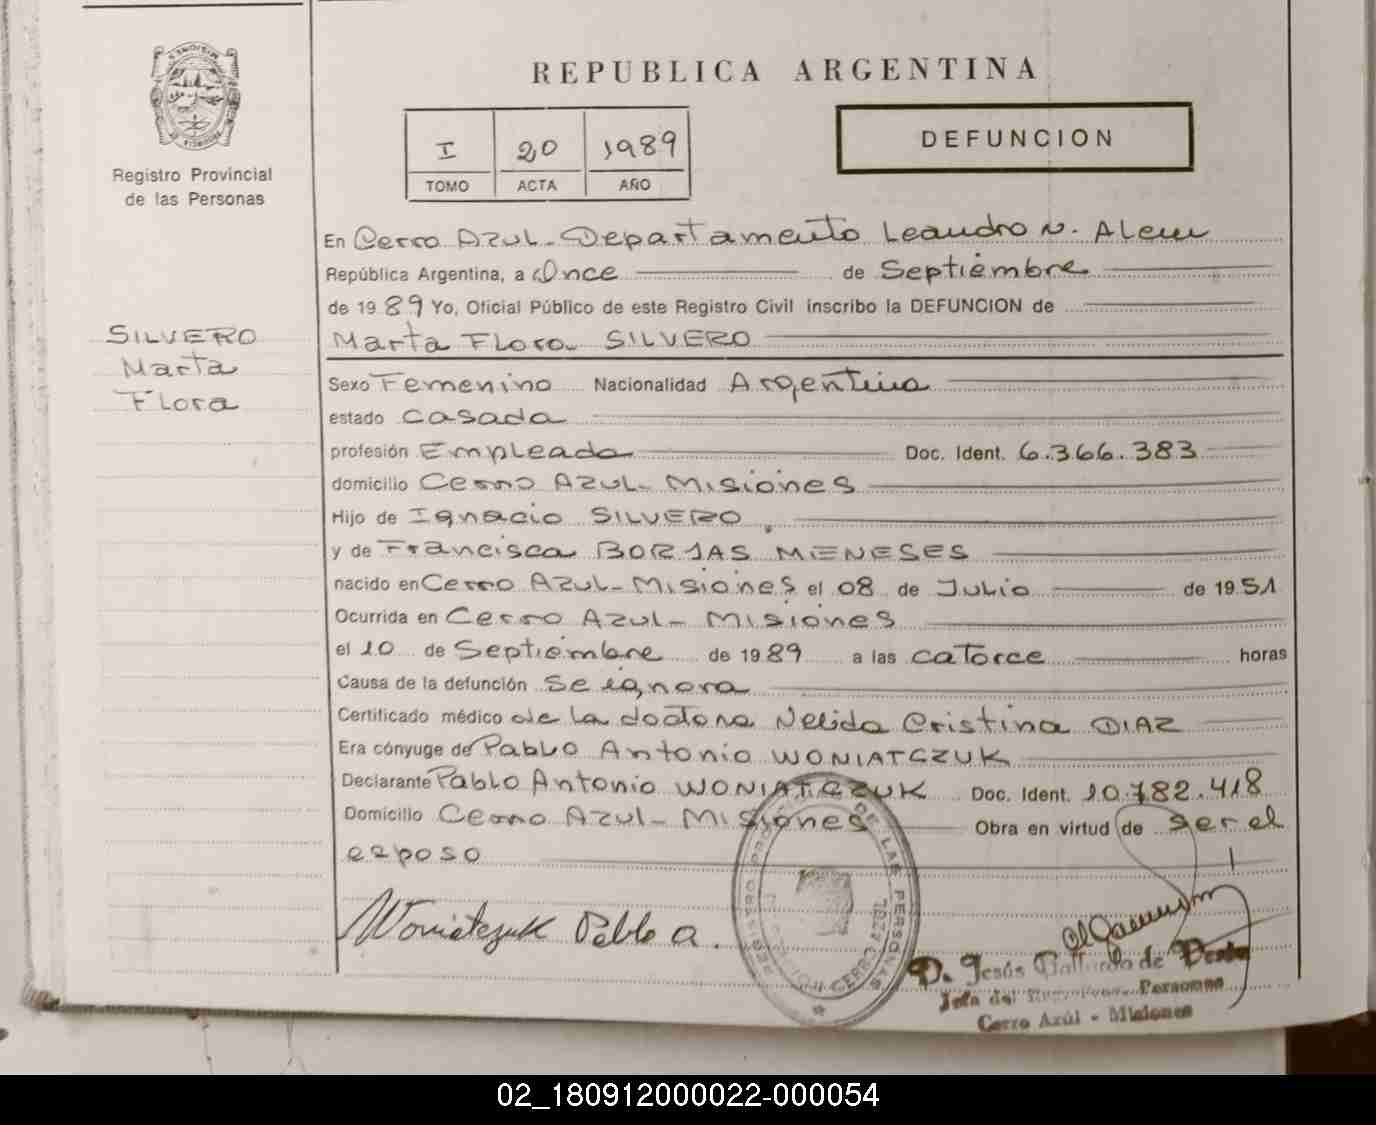 REPUBLICA ARGENTINA
I 20 1989
TOMO ACTA AÑO
DEFUNCION
Registro Provincial
de las Personas
SILVERO
Marta
Flora
En Cerro Azul - Departamento Leandro N. Alem
República Argentina, a Once de Septiembre
de 1989 Yo, Oficial Público de este Registro Civil inscribo la DEFUNCION de
Marta Flora SILVERO
Sexo Femenino Nacionalidad Argentina
estado Casada
profesión Empleada Doc. Ident. 6.366.383
domicilio Cerro Azul - Misiones
Hijo de Ignacio SILVERO
y de Francisca BORJAS MENESES
nacido en Cerro Azul - Misiones el 08 de Julio de 1951
Ocurrida en Cerro Azul - Misiones
el 10 de Septiembre de 1989 a las catorce horas
Causa de la defunción Se ignora
Certificado médico de la doctora Nelida Cristina DIAZ
Era cónyuge de Pablo Antonio WONIATCZUK
Declarante Pablo Antonio WONIATCZUK Doc. Ident. 10.782.418
Domicilio Cerro Azul - Misiones Obra en virtud de ser el
esposo
Woniatczuk Pablo A.
DE LAS PERSONAS
CERRO AZUL
D. Jesús de
Jefa del Personas
Cerro Azúl - Misiones
02_180912000022-000054